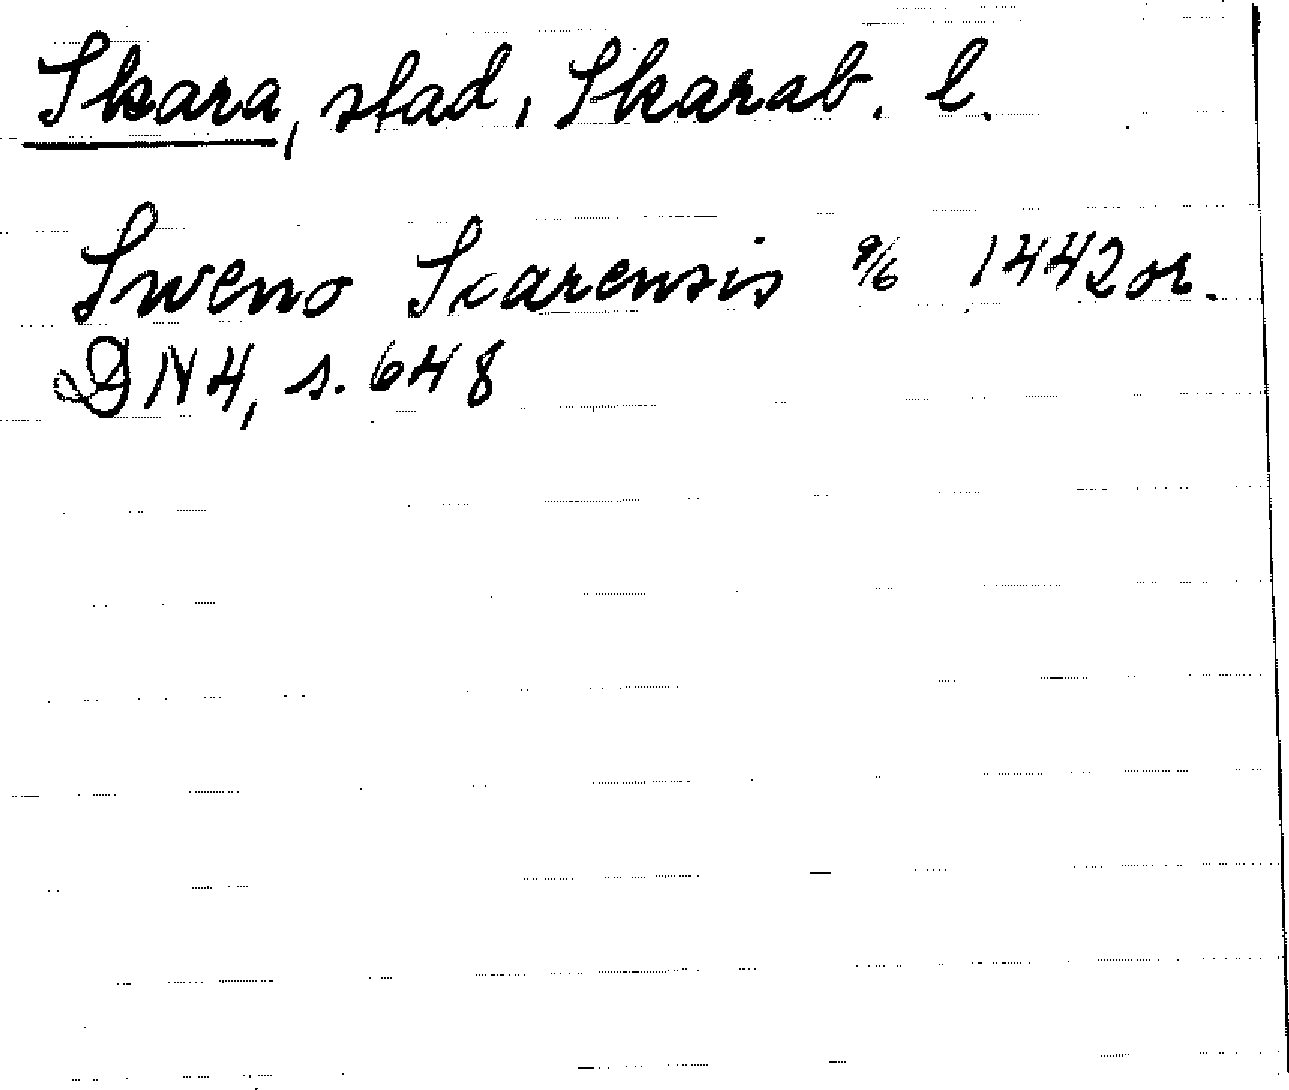 Skara, stad, Skarab. l.
Sweno Scarensis 9/6 1442 or.
DN 4, s. 648